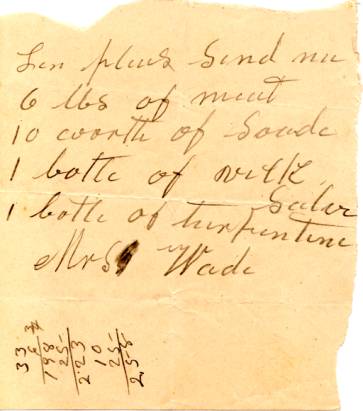 pleus Send me
6 lbs of meat
10 worth of Soade
1 botle of
Salve
1 botle of turpentine
Mrs Wade
33
6
198
25
2.23
10
25
2.58